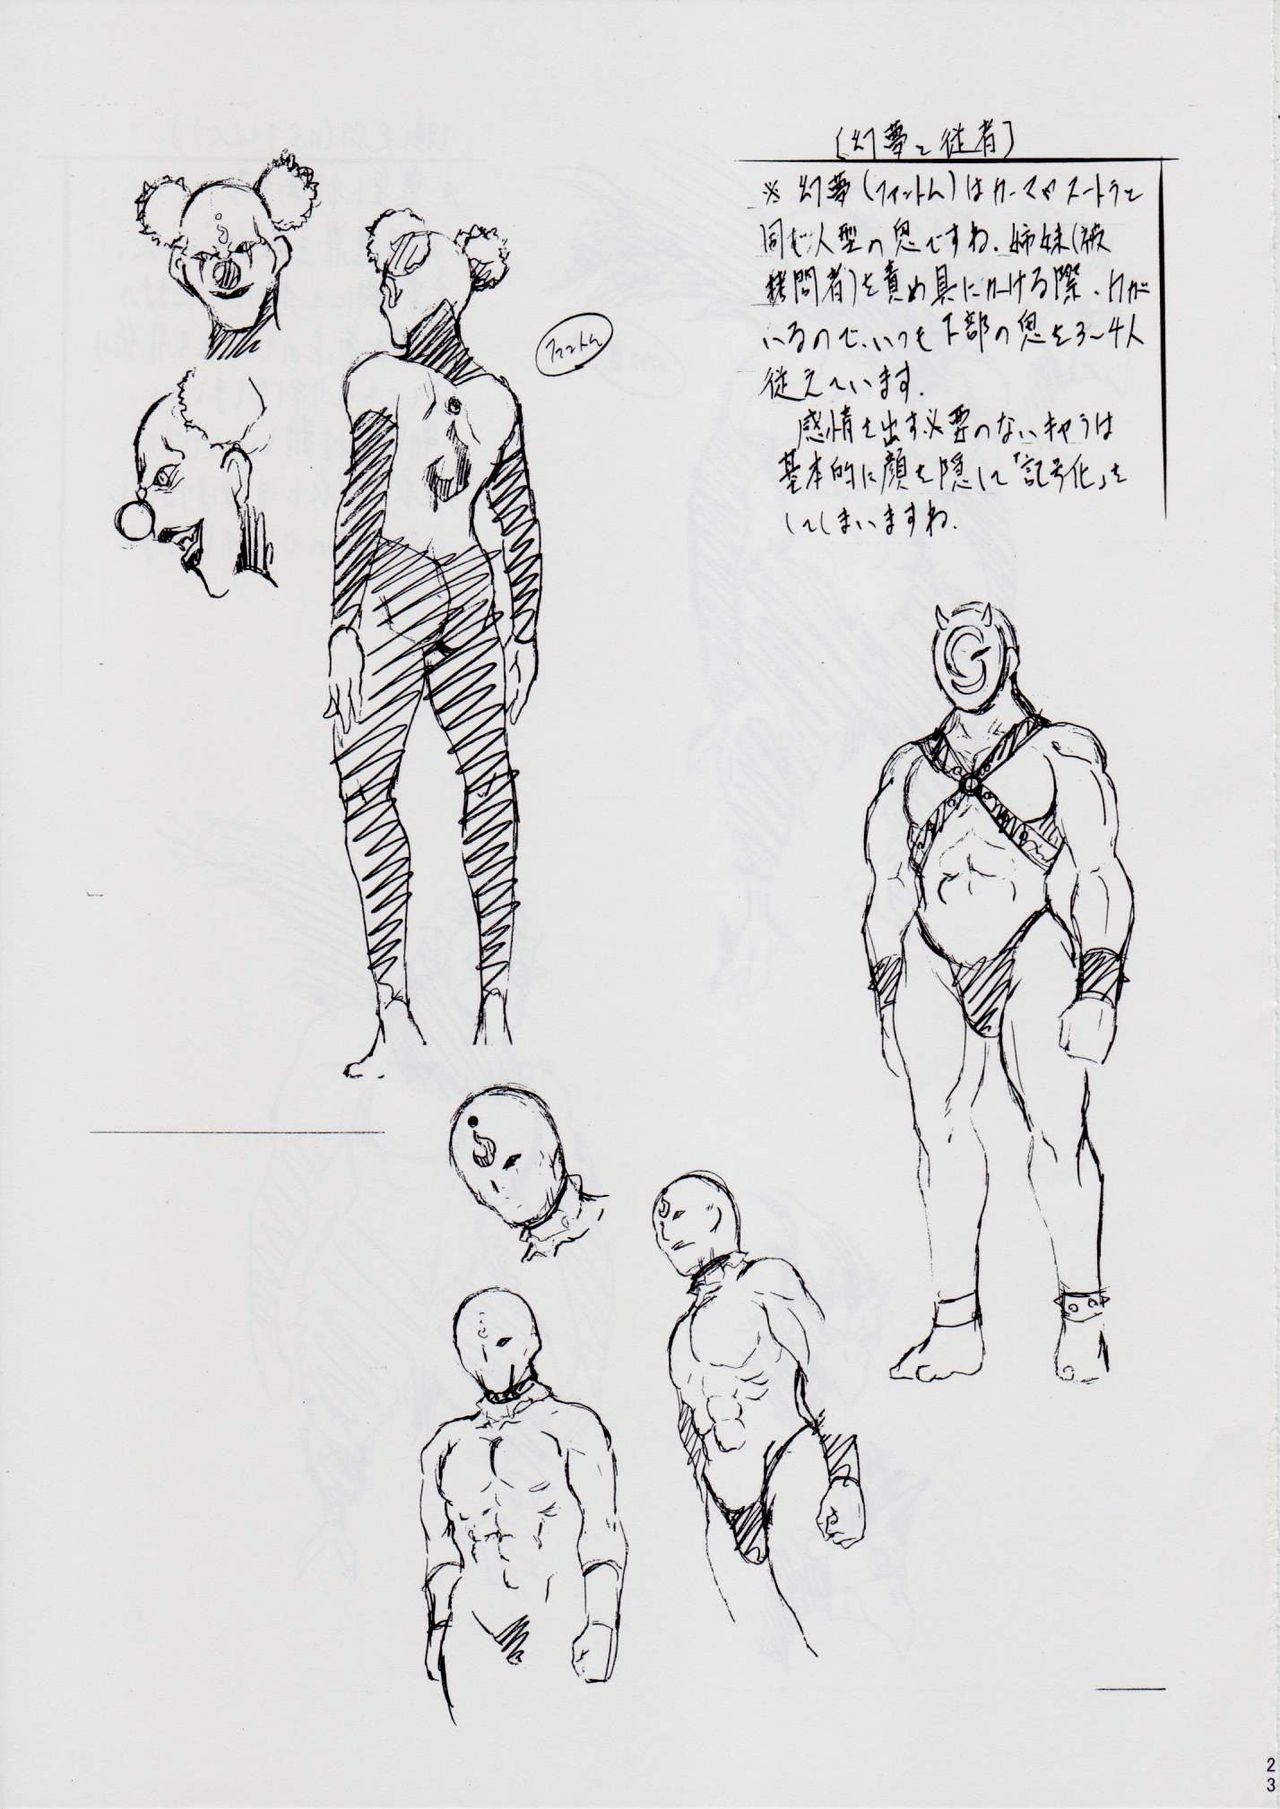 〔幻夢と従者〕
※ 幻夢(ファントム)はカーマやスートラと
同じ人型の鬼ですね。姉妹(被
拷問者)を責め具にかける際、力が
いるので、いつも下部の鬼を3～4人
従えています。
感情を出す必要のないキャラは
基本的に顔を隠して「記号化」を
してしまいますね。
ファントム
23